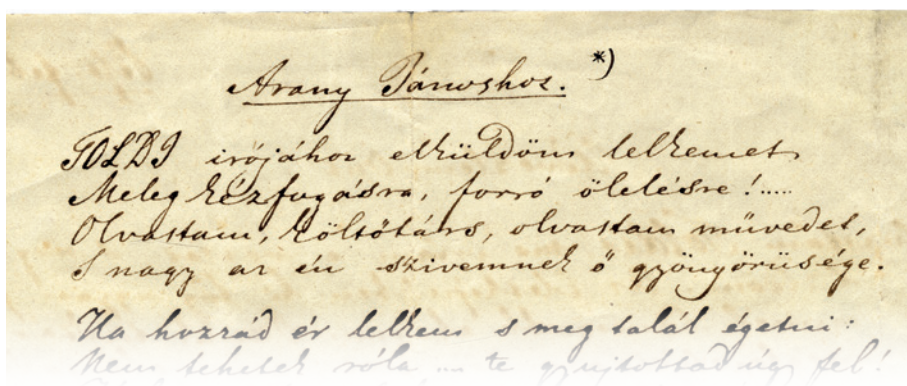 Arany Jánoshoz. *)
TOLDI irójához elküldöm lelkemet
Meleg kézfogásra, forró ölelésre!.....
Olvastam, költőtárs, olvastam művedet,
S nagy az én szivemnek ő gyönyörüsége.
Ha hozzád ér lelkem s meg talál égetni:
Nem tehetek róla ... te gyujtottad úgy fel!